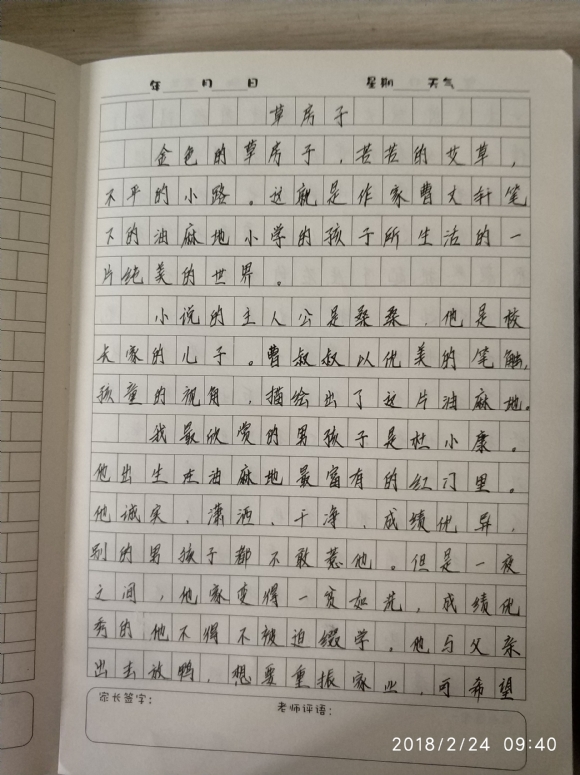 年 月 日 星期 天气
草房子
金色的草房子，苦苦的艾草，
不平的小路。这就是作家曹文轩笔
下的油麻地小学的孩子所生活的一
片纯美的世界。
小说的主人公是桑桑，他是校
长家的儿子。曹叔叔以优美的笔触，
孩童的视角，描绘出了这片油麻地。
我最欣赏的男孩子是杜小康。
他出生在油麻地最富有的红门里。
他诚实、潇洒、干净，成绩优异，
别的男孩子都不敢惹他。但是一夜
之间，他家变得一贫如洗，成绩优
秀的他不得不被迫缀学。他与父亲
出去放鸭，想要重振家业，可希望
家长签字：
老师评语：
2018/2/24 09:40